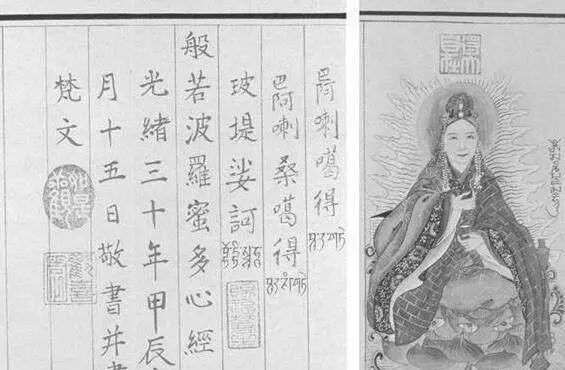 巴阿喇噶得
巴阿喇桑噶得
玻提娑訶
般若波羅蜜多心經
光緒三十年甲辰
月十五日敬書并
梵文